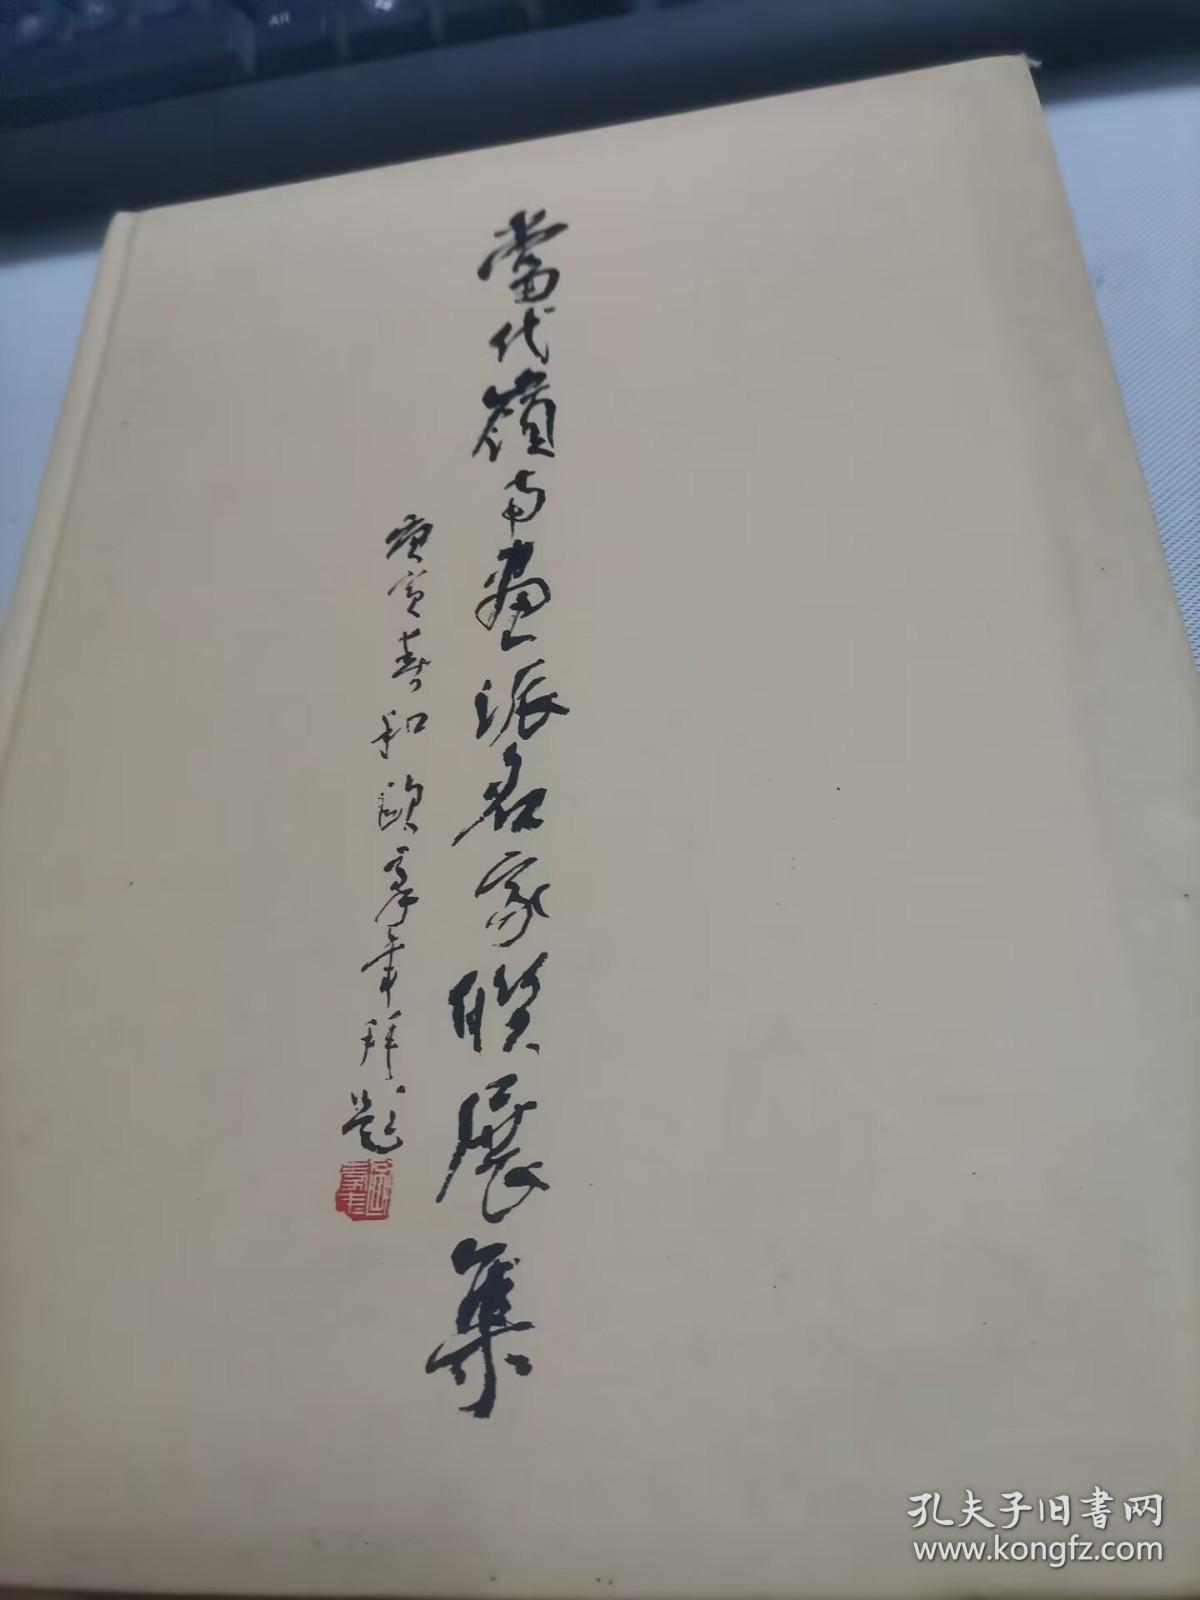 當代嶺南畫派名家聯展集
庚寅春和歐豪年拜題
孔夫子旧书网
www.kongfz.com